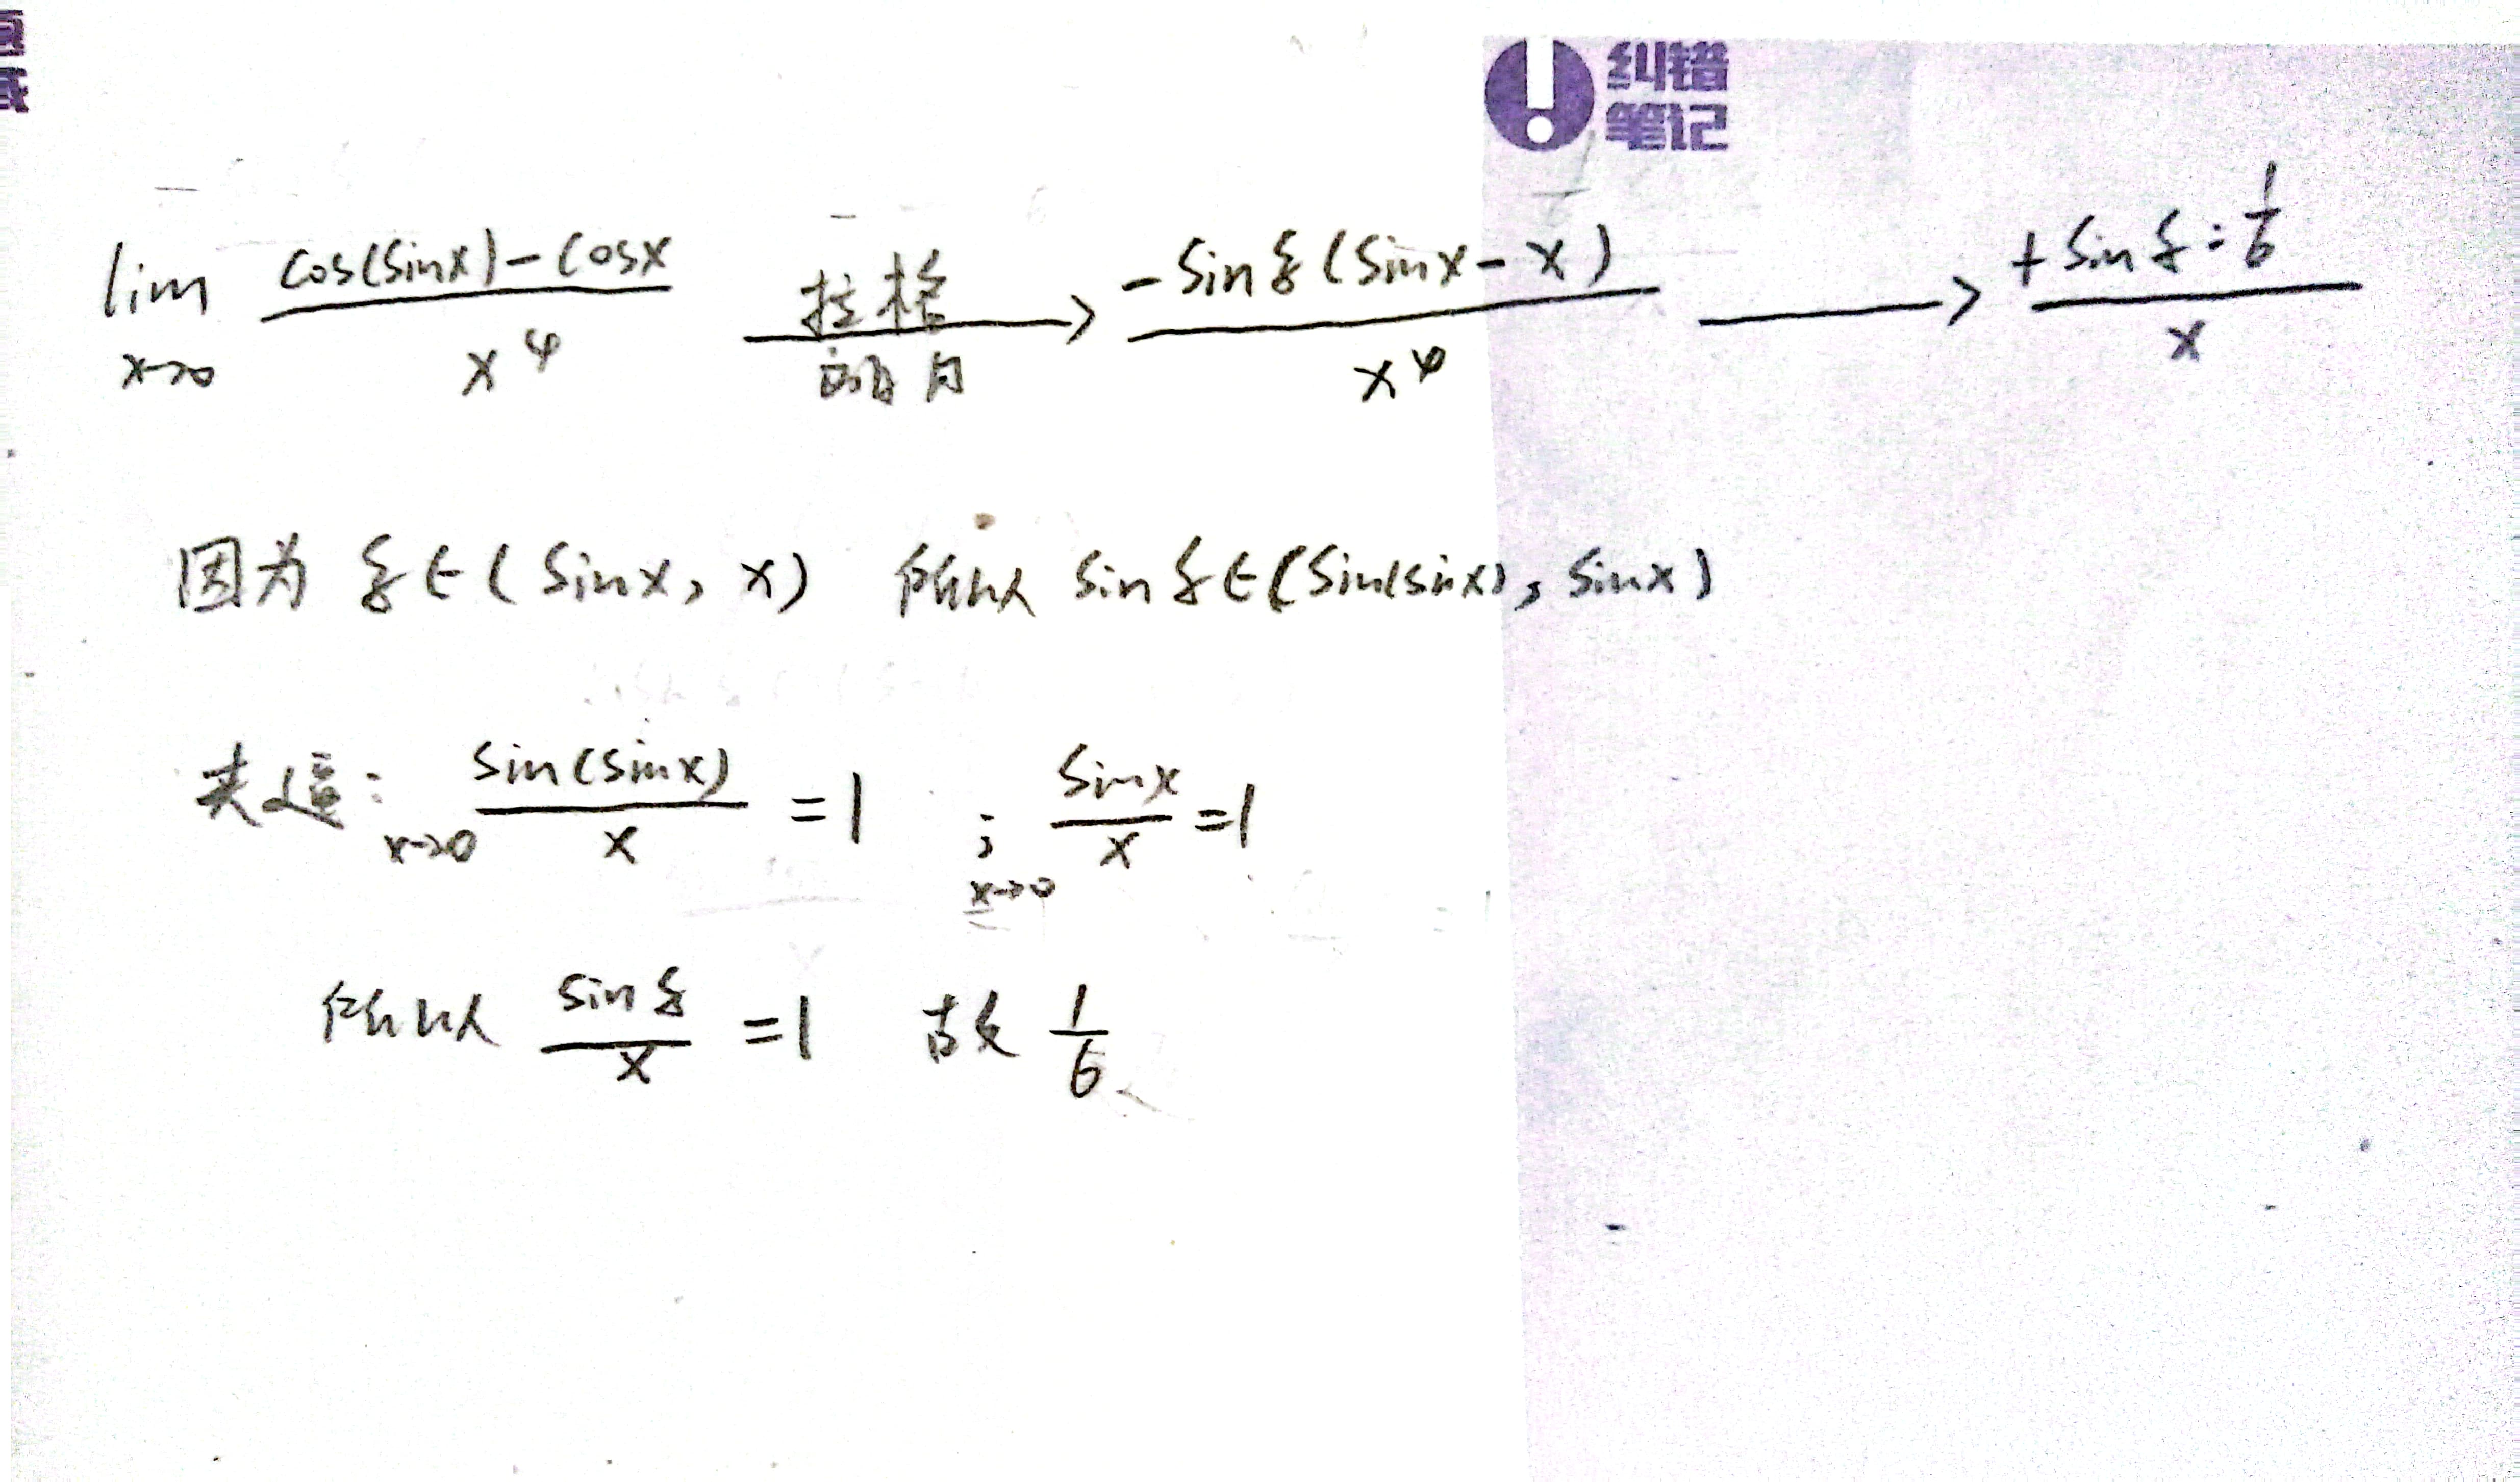 纠错
笔记
lim x→0 (cos(sinx)-cosx)/x^4 拉格朗日→ (-sinξ(sinx-x))/x^4 → (+sinξ·1/6)/x
因为 ξ∈(sinx, x) 所以 sinξ∈(sin(sinx), sinx)
夹逼: x→0 sin(sinx)/x =1 ; x→0 sinx/x =1
所以 sinξ/x =1 故 1/6